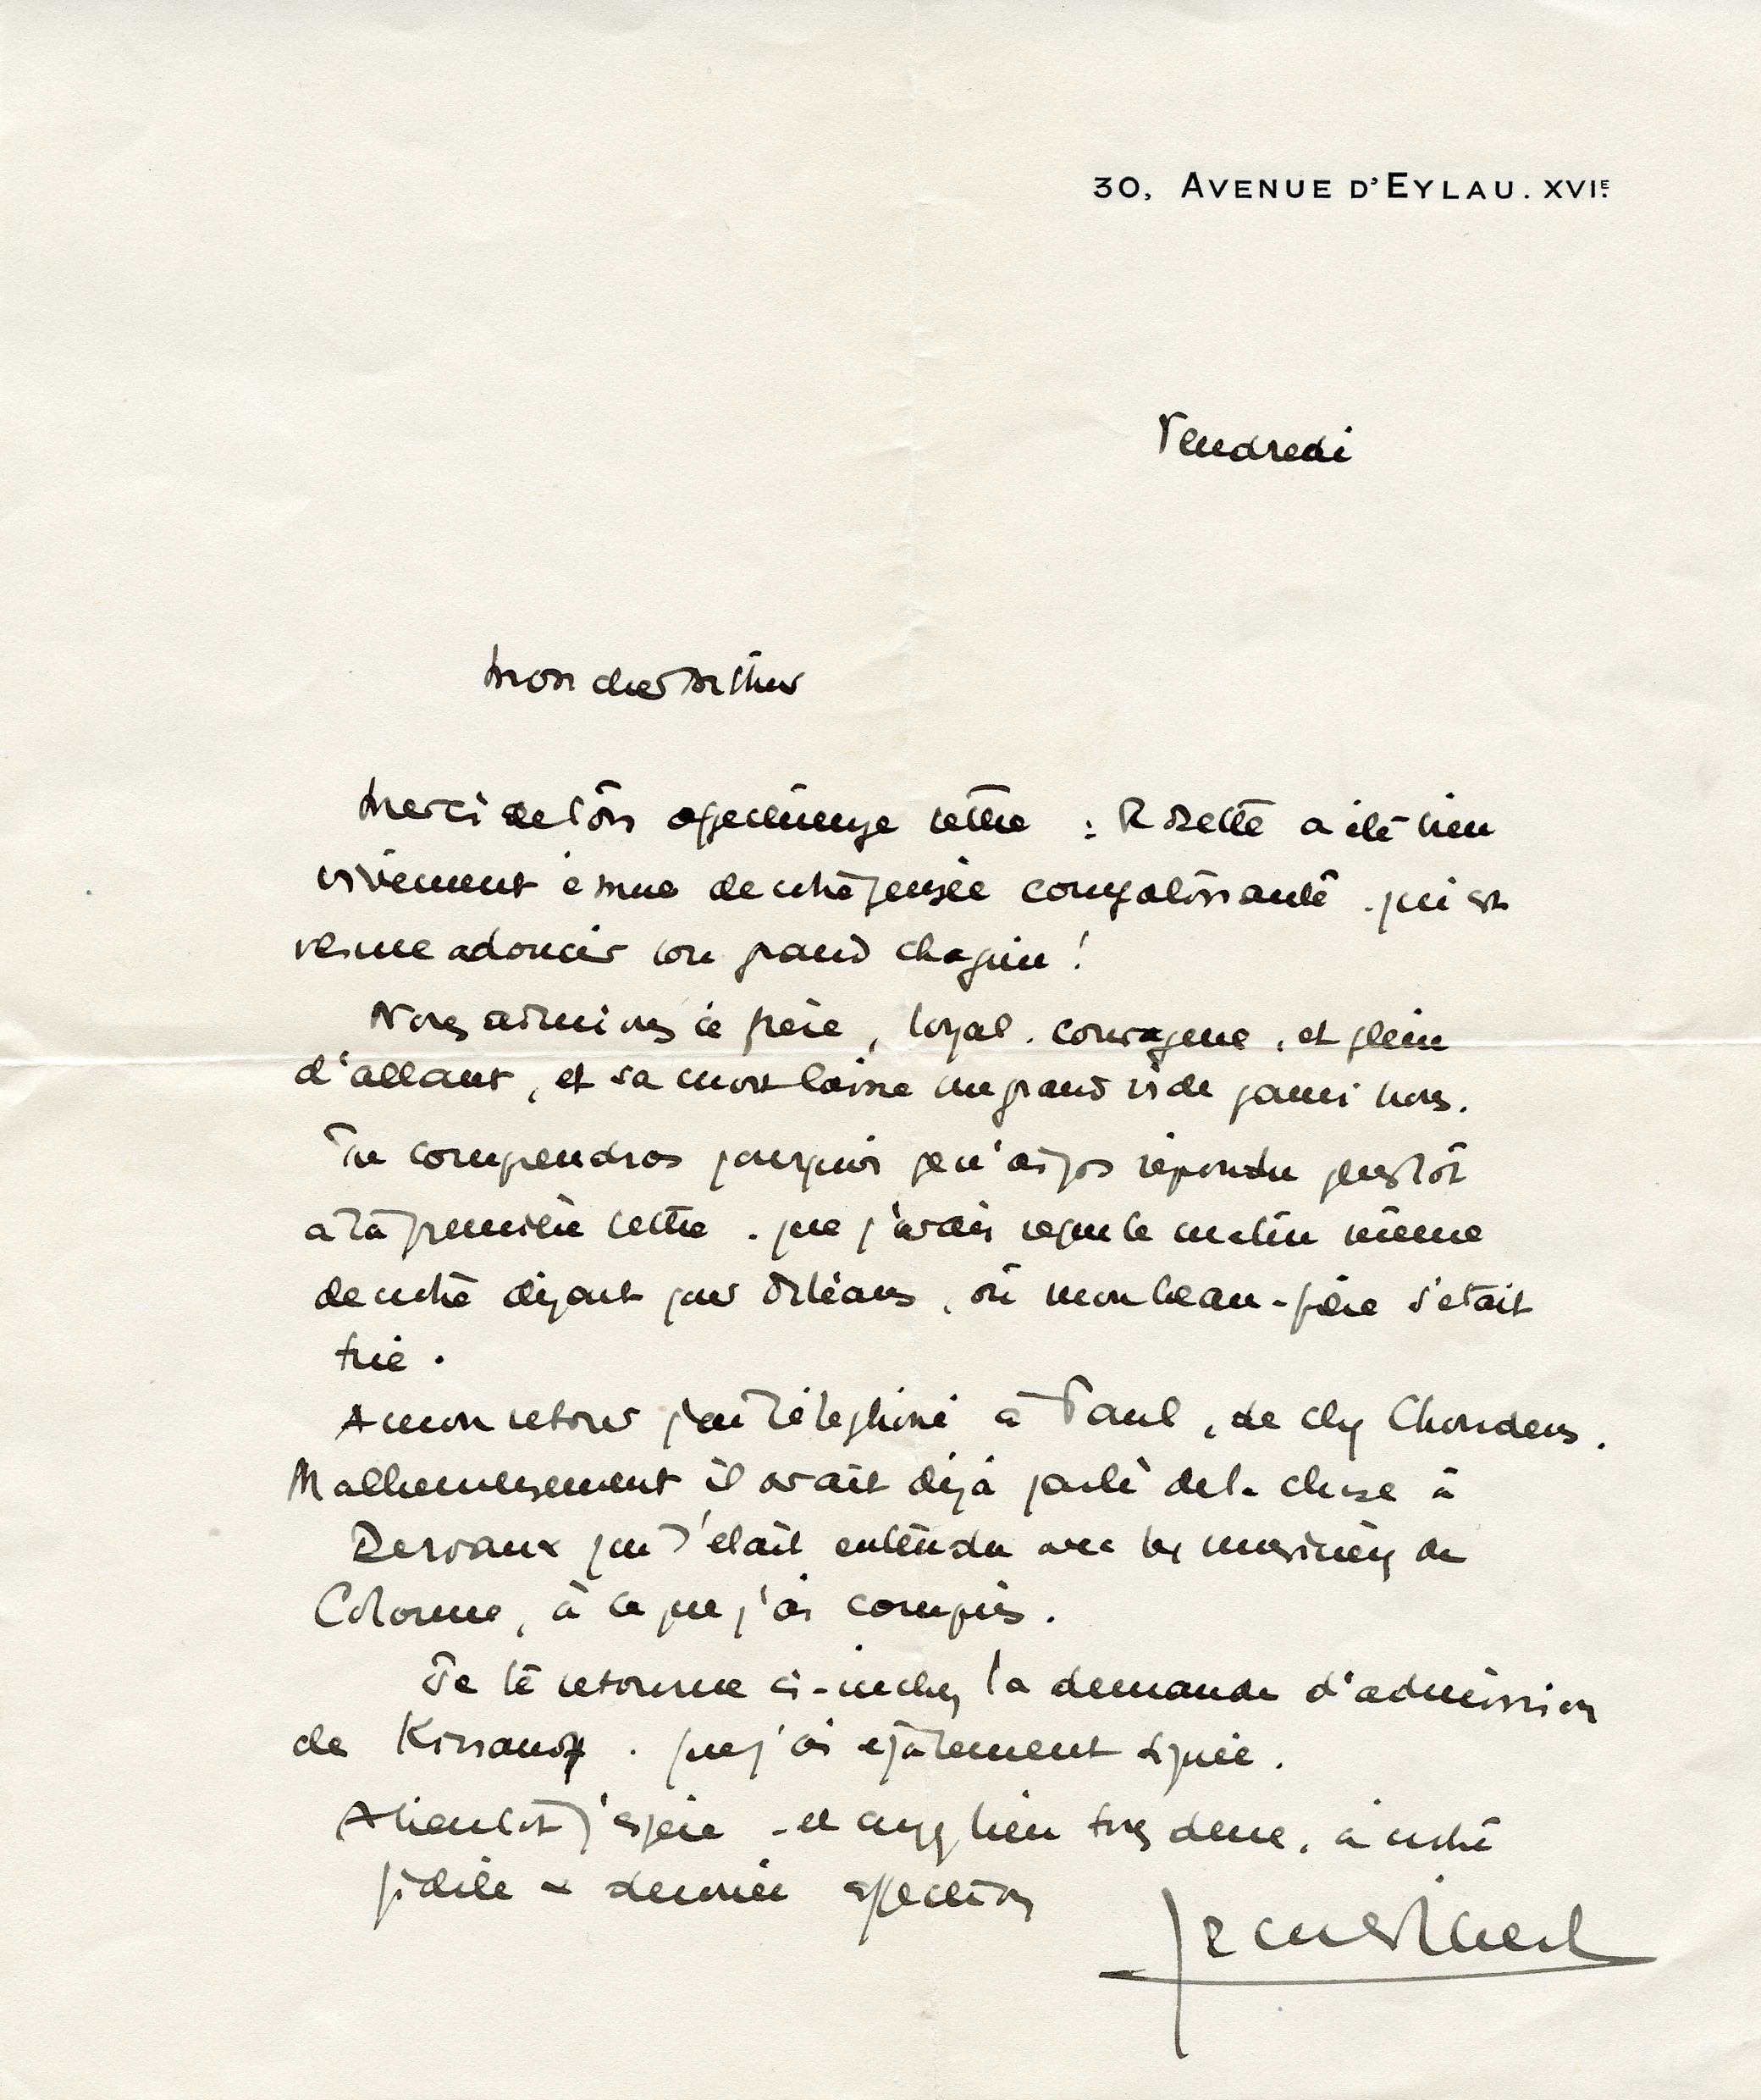 30, AVENUE D'EYLAU. XVIE.
Vendredi
Mon cher Arthur
Merci de ton affectueuse lettre : Rosette a été bien
vivement émue de votre pensée compatissante . qui est
venue adoucir son grand chagrin !
Nous aimions ce frère , loyal . courageux , et plein
d'allant , et sa mort laisse un grand vide parmi nous .
Tu comprendras pourquoi je n'ai pas répondu plus tôt
à ta première lettre . que j'avais reçue le matin même
de notre départ pour Orléans , où mon beau-frère s'était
tué .
A mon retour j'ai téléphoné à Paul , de chez Choudens .
Malheureusement il avait déjà parlé de la chose à
Dervaux qui s'était entendu avec les musiciens de
Colonne , à ce que j'ai compris .
Je te retourne ci-inclus la demande d'admission
de Kirsanoff . que j'ai également signée .
A bientôt j'espère - et croyez bien tous deux , à notre
fidèle & dévouée affection
Jacques Ibert